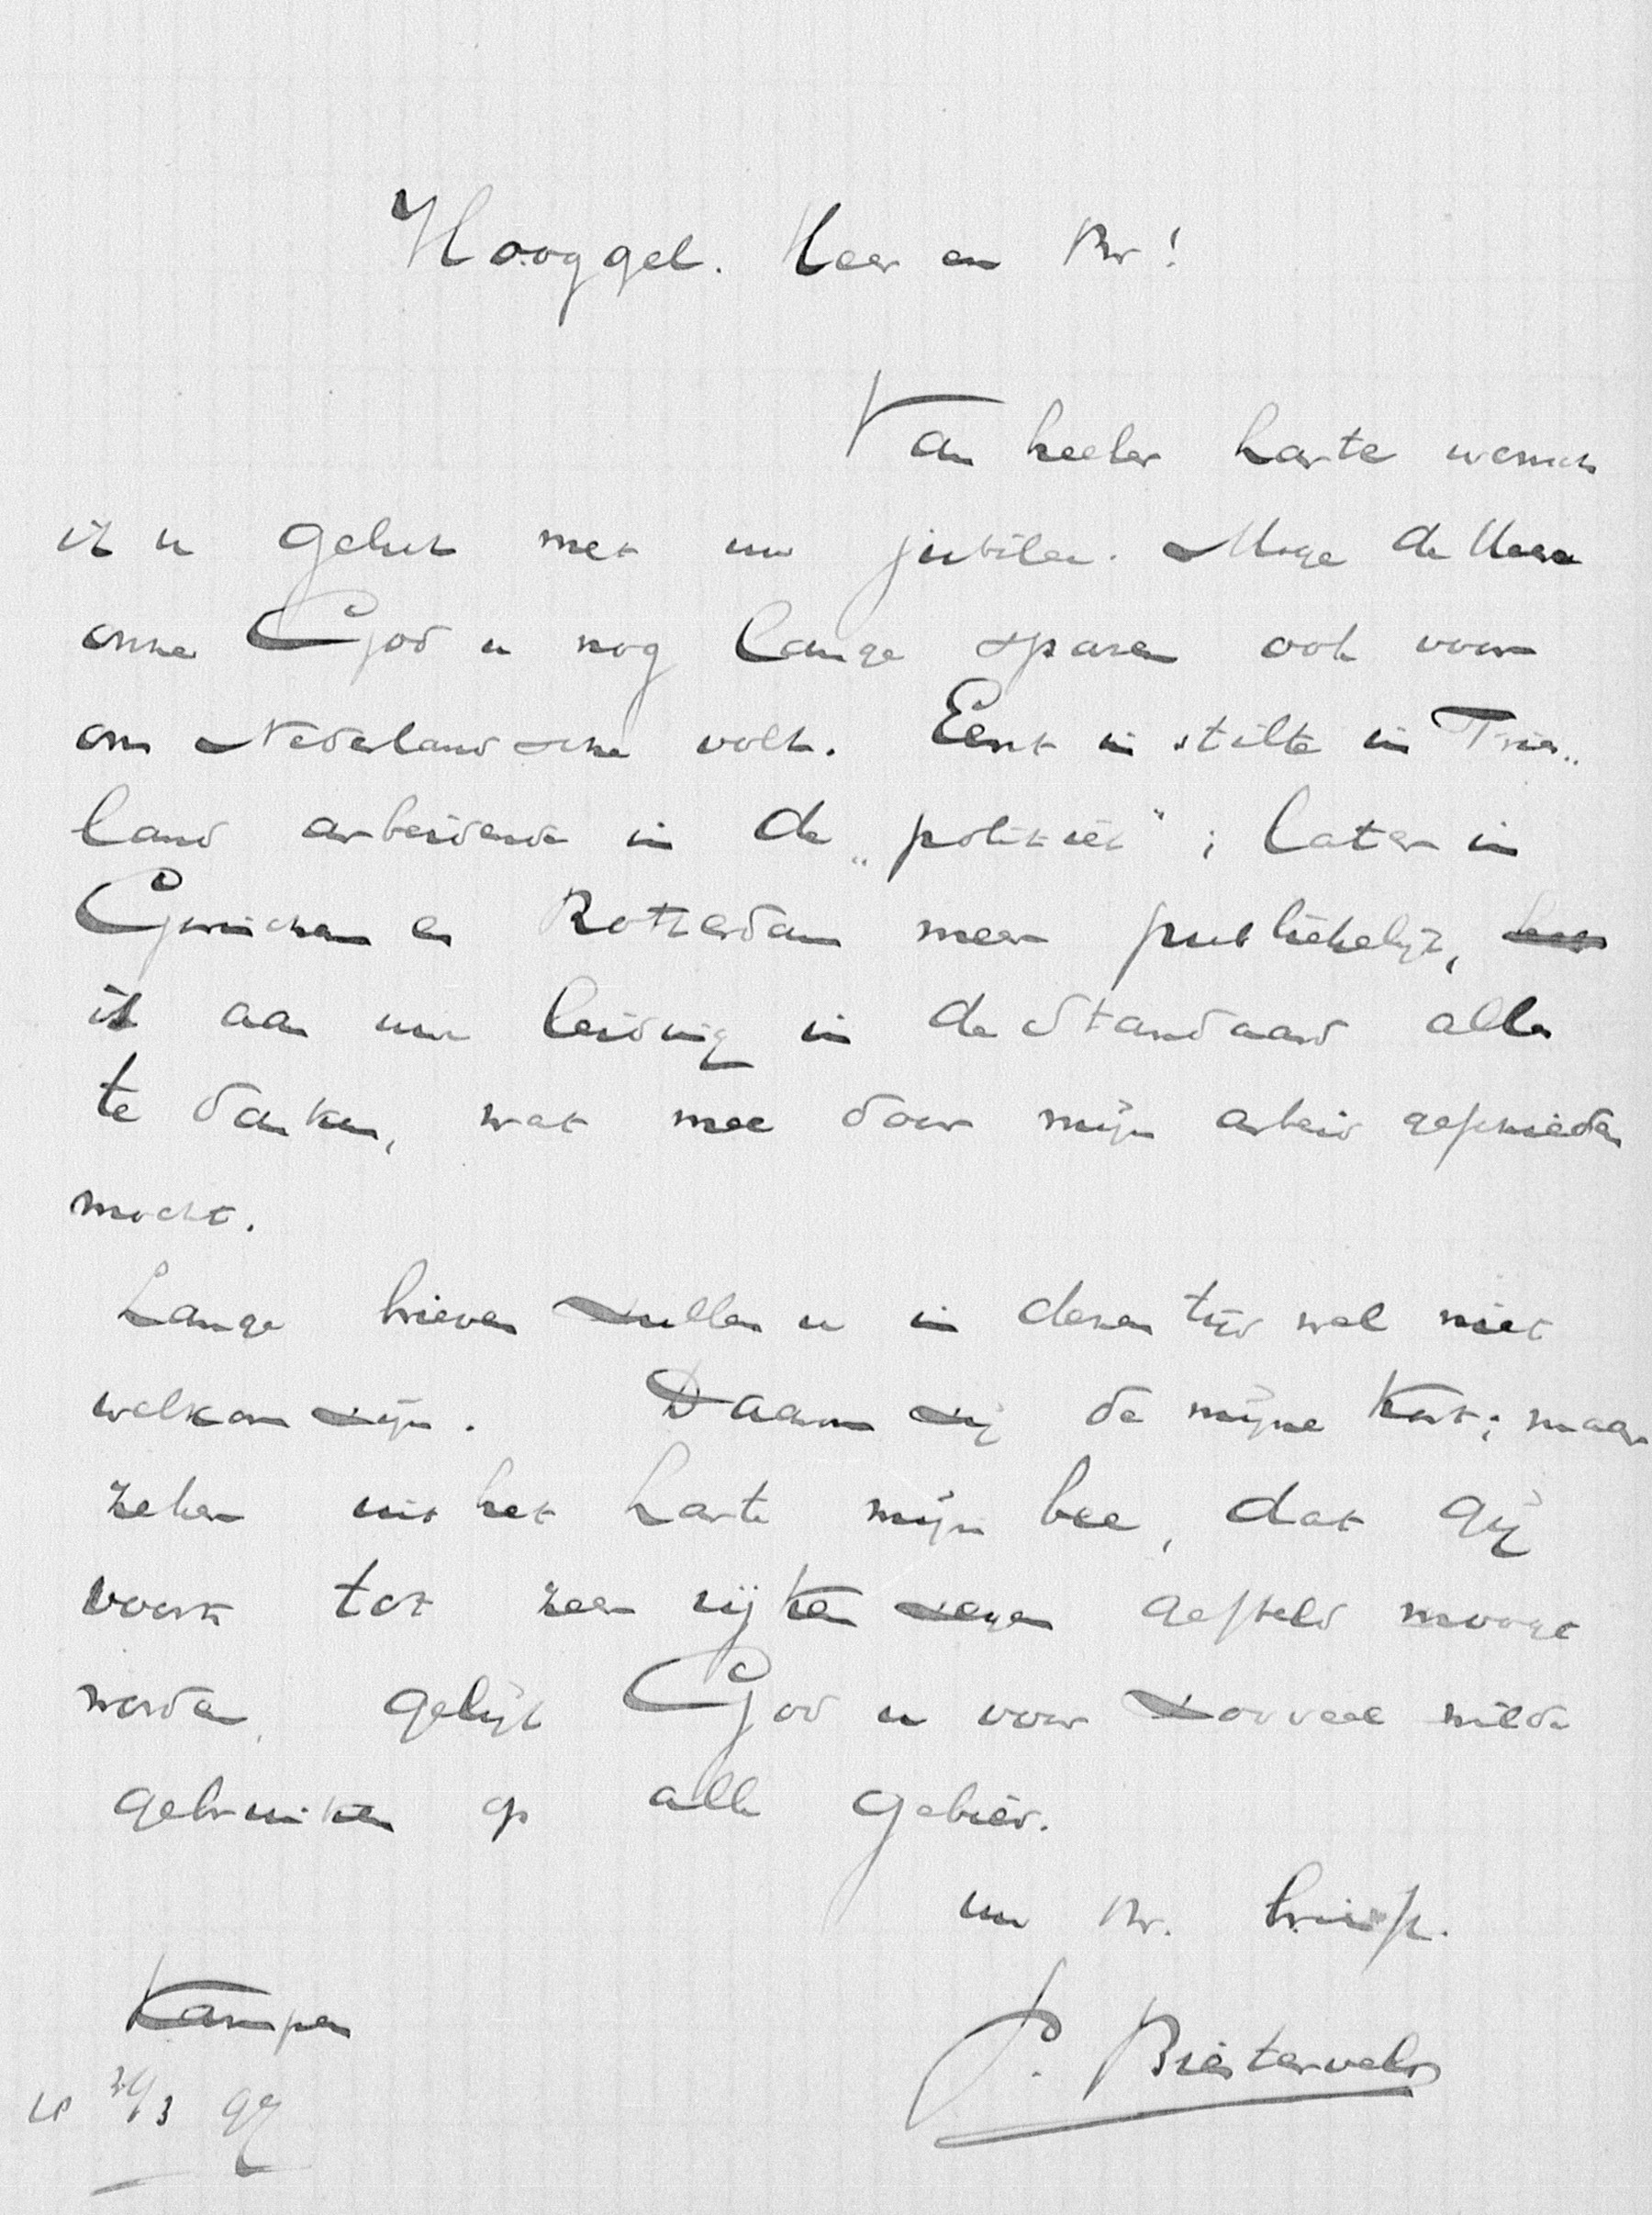 Hooggel. Heer en Br!
Van heeler harte wensch
ik u geluk met uw jubilee. Moge de Heere
onze God u nog lange sparen ook voor
ons Nederlandsche volk. Eerst in stilte in Fries„
land arbeidende in de „politiek"; later in
Gorinchem en Rotterdam meer publiekelijk,
ik aan uw leiding in de Standaard alles
te danken, wat mee door mijn arbeid geschieden
mocht.
Lange brieven zullen u in dezen tijd wel niet
welkom zijn. Daarom zij de mijne kort; maar
zeker uit het harte mijn bee, dat gij
voorts tot zeer rijken zegen gesteld mooge
worden, gelijk God u voor zooveel wilde
gebruiken op alle gebied.
uw br. hulp.
P. Biesterveld
Kampen
3 97